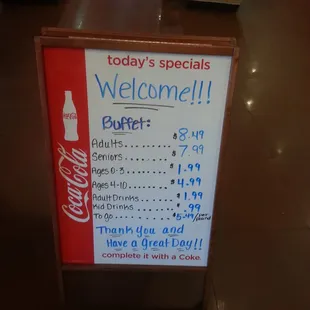 today's specials
Welcome!!!
Buffet:
Adults......... $8.49
Seniors.......... $7.99
Ages 0-3......... $1.99
Ages 4-10........ $4.99
Adult Drinks...... $1.99
Kid Drinks........ $.99
To go............ $5.49/
Thank You and
Have a Great Day!!
complete it with a Coke
Coca-Cola